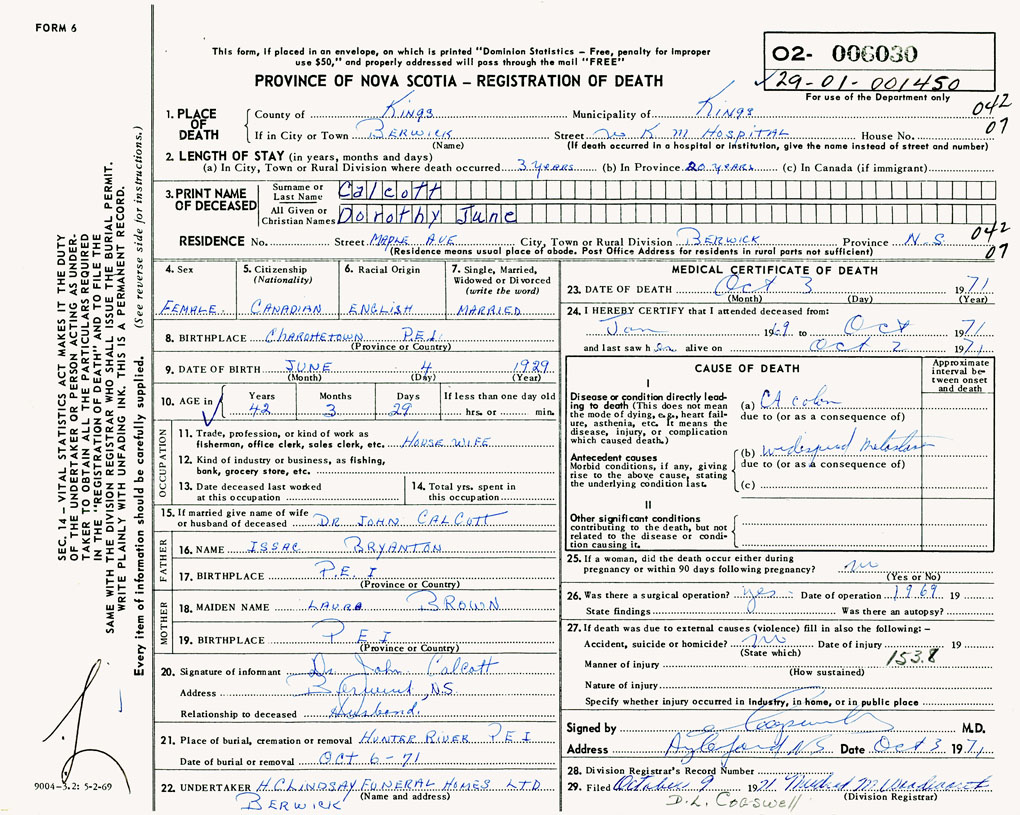 FORM 6
This form, if placed in an envelope, on which is printed "Dominion Statistics – Free, penalty for improper
use $50," and properly addressed will pass through the mail "FREE"
O2- 006030
29-01-001450
For use of the Department only
PROVINCE OF NOVA SCOTIA – REGISTRATION OF DEATH
042
07
1. PLACE OF DEATH
County of Kings Municipality of Kings
If in City or Town BERWICK Street W K M HOSPITAL House No.
(Name) (If death occurred in a hospital or institution, give the name instead of street and number)
2. LENGTH OF STAY (in years, months and days)
(a) In City, Town or Rural Division where death occurred 3 YEARS (b) In Province 20 YEARS (c) In Canada (if immigrant)
3. PRINT NAME OF DECEASED
Surname or Last Name Calcott
All Given or Christian Names Dorothy June
042
07
RESIDENCE No. Street MAPLE AVE City, Town or Rural Division BERWICK Province N.S.
(Residence means usual place of abode. Post Office Address for residents in rural parts not sufficient)
4. Sex
FEMALE
5. Citizenship
(Nationality)
CANADIAN
6. Racial Origin
ENGLISH
7. Single, Married,
Widowed or Divorced
(write the word)
MARRIED
8. BIRTHPLACE P.E.I.
(Province or Country)
9. DATE OF BIRTH JUNE 4 1929
(Month) (Day) (Year)
10. AGE in
Years Months Days If less than one day old
42 3 29 hrs. or min.
OCCUPATION
11. Trade, profession, or kind of work as
fisherman, office clerk, sales clerk, etc. HOUSE WIFE
12. Kind of industry or business, as fishing,
bank, grocery store, etc.
13. Date deceased last worked
at this occupation
14. Total yrs. spent in
this occupation
15. If married give name of wife
or husband of deceased DR JOHN CALCOTT
FATHER
16. NAME ISSAC BRYANTON
17. BIRTHPLACE P.E.I
(Province or Country)
MOTHER
18. MAIDEN NAME LAURA BROWN
19. BIRTHPLACE P E I
(Province or Country)
20. Signature of informant Dr. John Calcott
Address Berwick, N.S.
Relationship to deceased Husband.
21. Place of burial, cremation or removal HUNTER RIVER P E I
Date of burial or removal OCT 6-71
22. UNDERTAKER H.C. LINDSAY FUNERAL HOMES LTD
(Name and address)
BERWICK
MEDICAL CERTIFICATE OF DEATH
23. DATE OF DEATH Oct 3 1971
(Month) (Day) (Year)
24. I HEREBY CERTIFY that I attended deceased from:
Jan 1969 to Oct 1971
and last saw h er alive on Oct 2 1971
CAUSE OF DEATH
Approximate
interval be-
tween onset
and death
I
Disease or condition directly lead-
ing to death (This does not mean
the mode of dying, e.g., heart fail-
ure, asthenia, etc. It means the
disease, injury, or complication
which caused death.)
(a) CA colon
due to (or as a consequence of)
Antecedent causes
Morbid conditions, if any, giving
rise to the above cause, stating
the underlying condition last.
(b) widespread metastases
due to (or as a consequence of)
(c)
II
Other significant conditions
contributing to the death, but not
related to the disease or condi-
tion causing it.
25. If a woman, did the death occur either during
pregnancy or within 90 days following pregnancy? no
(Yes or No)
26. Was there a surgical operation? yes Date of operation 1969 19
State findings Was there an autopsy?
27. If death was due to external causes (violence) fill in also the following: –
Accident, suicide or homicide? no Date of injury 19
(State which)
153.8
Manner of injury
(How sustained)
Nature of injury
Specify whether injury occurred in Industry, in home, or in public place
Signed by M.D.
Address Aylesford NS Date Oct 3 1971
28. Division Registrar's Record Number
29. Filed October 9 1971
(Division Registrar)
D.L. COGSWELL
SEC. 14 – VITAL STATISTICS ACT MAKES IT THE DUTY
OF THE UNDERTAKER OR PERSON ACTING AS UNDER-
TAKER TO OBTAIN ALL THE PARTICULARS REQUIRED
IN THE "REGISTRATION OF DEATH" AND TO FILE THE
SAME WITH THE DIVISION REGISTRAR WHO SHALL ISSUE THE BURIAL PERMIT.
WRITE PLAINLY WITH UNFADING INK. THIS IS A PERMANENT RECORD.
Every item of information should be carefully supplied. (See reverse side for instructions.)
9004-3.2: 5-2-69